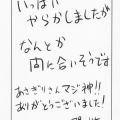 いっぱい
やらかしましたが
なんとか
間に合いそうです
あさぎりさんマジ神!!
ありがとうございました!